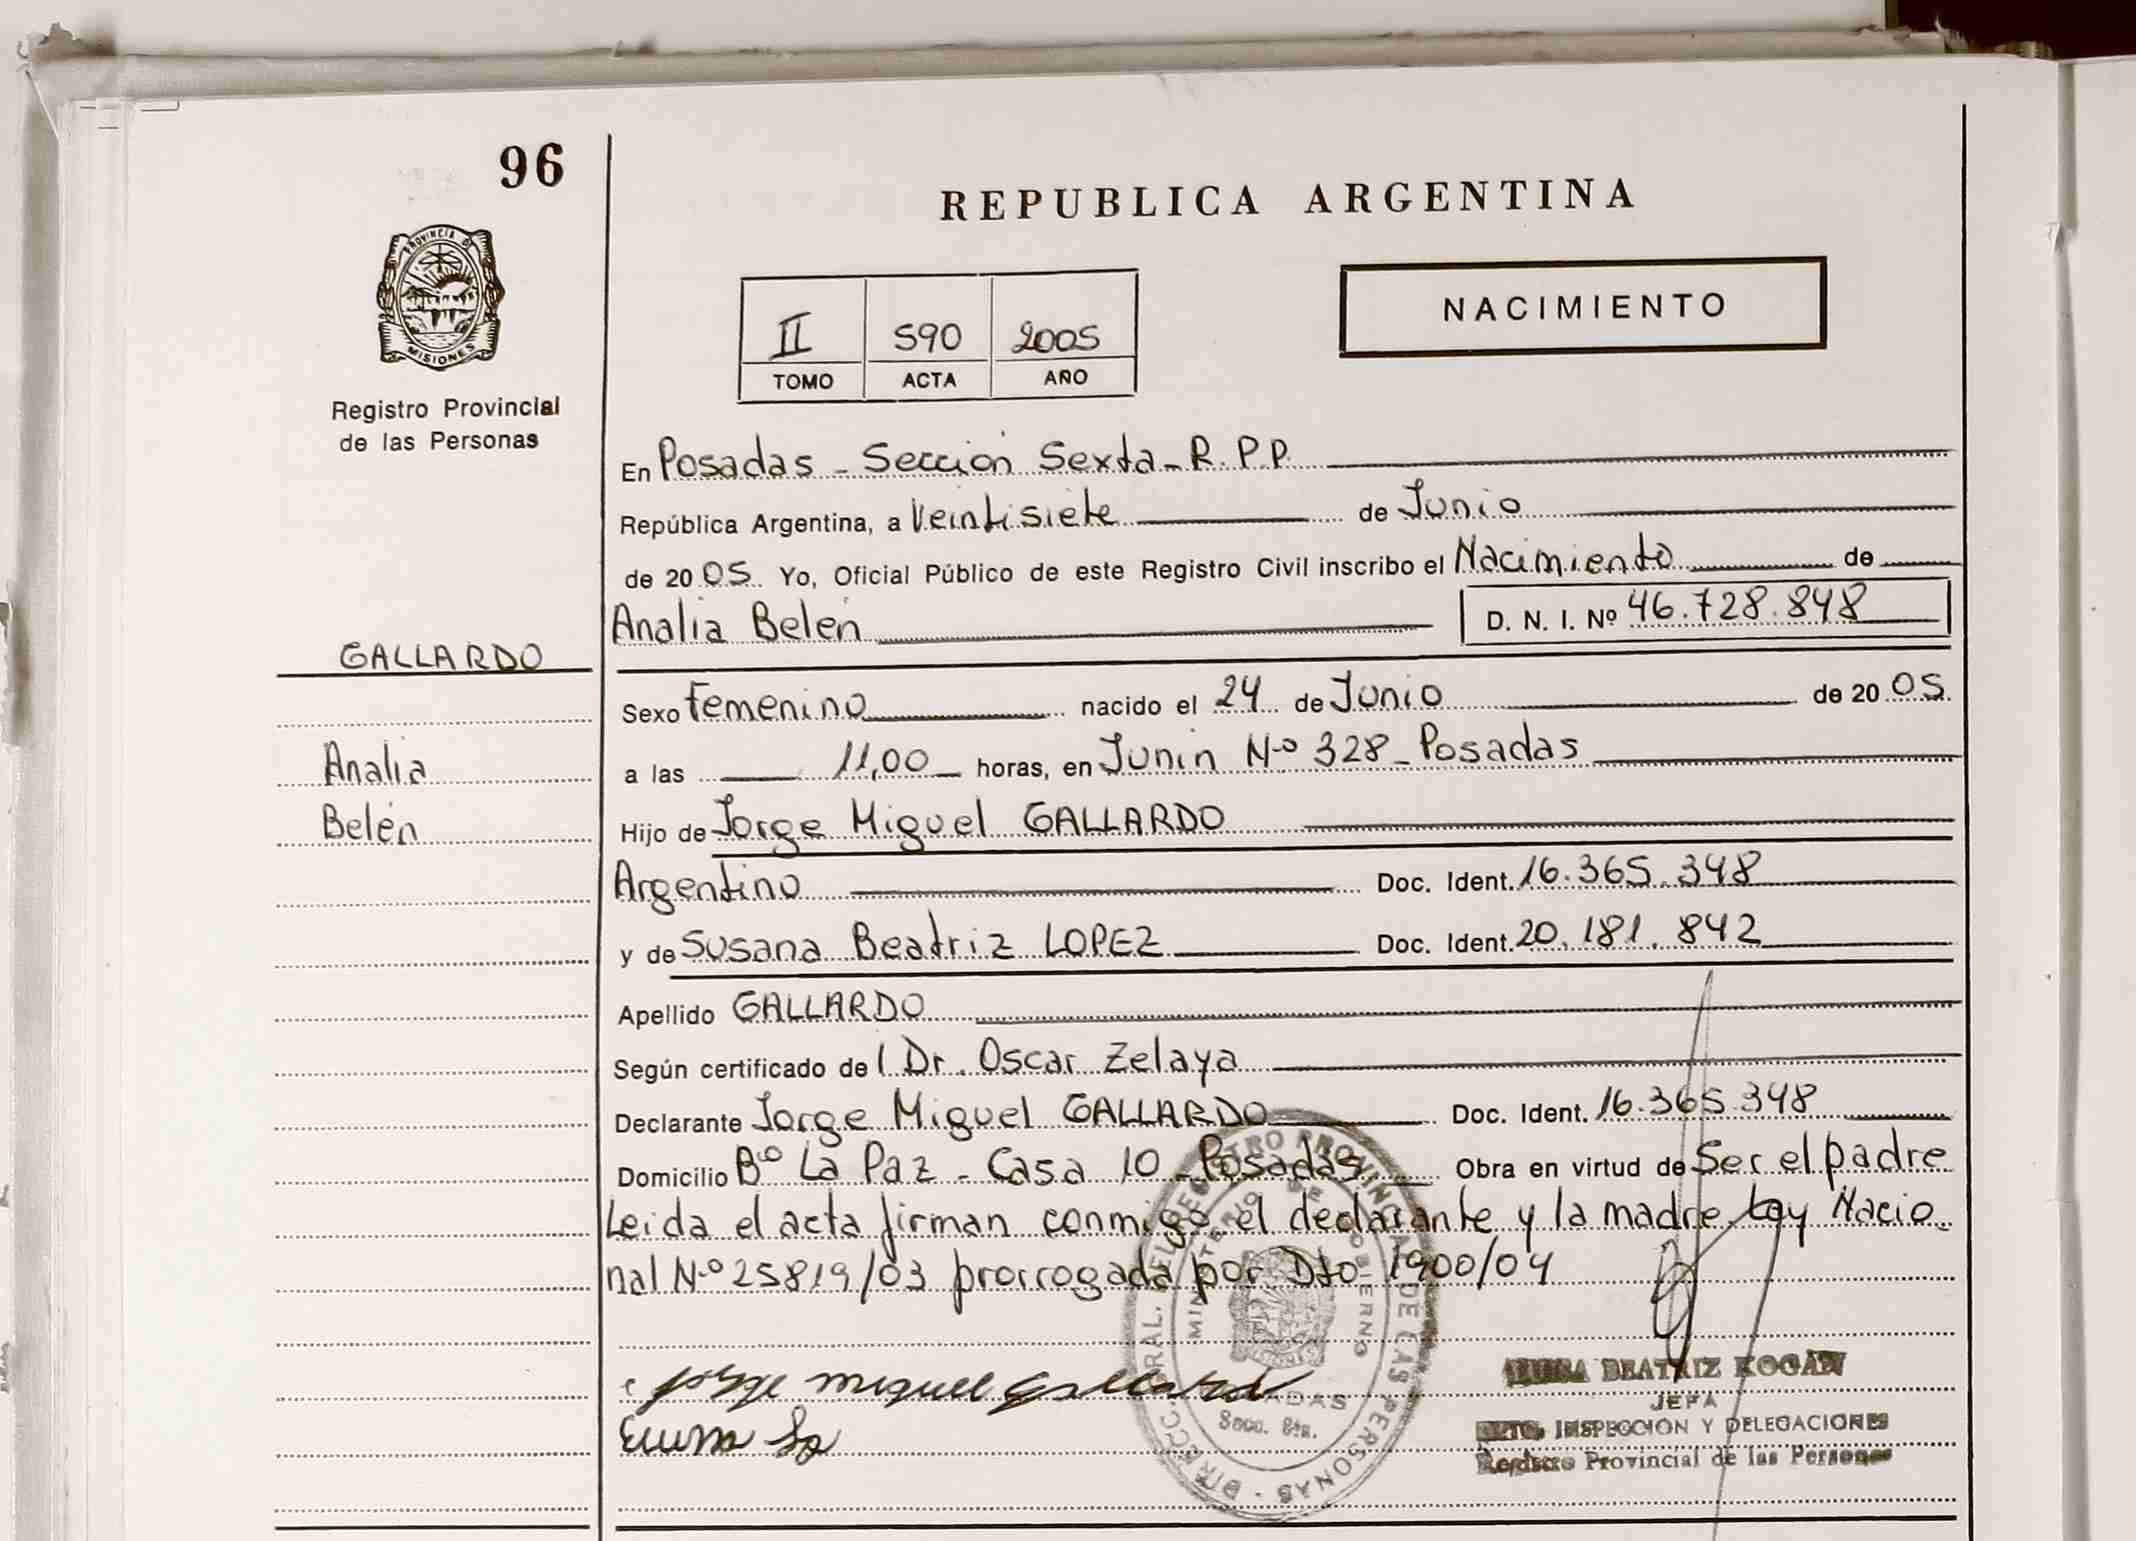 96
REPUBLICA ARGENTINA
PROVINCIA DE
MISIONES
NACIMIENTO
II 590 2005
TOMO ACTA AÑO
Registro Provincial
de las Personas
En Posadas - Sección Sexta - R.P.P.
República Argentina, a Veintisiete de Junio
de 2005. Yo, Oficial Público de este Registro Civil inscribo el Nacimiento de
Analia Belén D. N. I. Nº 46.728.848
GALLARDO
Sexo Femenino nacido el 24 de Junio de 2005.
Analia
a las 11,00 horas, en Junin Nº 328 - Posadas
Belén
Hijo de Jorge Miguel GALLARDO
Argentino Doc. Ident. 16.365.348
y de Susana Beatriz LOPEZ Doc. Ident. 20.181.842
Apellido GALLARDO
Según certificado del Dr. Oscar Zelaya
Declarante Jorge Miguel GALLARDO Doc. Ident. 16.365.348
Domicilio Bº La Paz - Casa 10 - Posadas Obra en virtud de Ser el padre
Leida el acta firman conmigo el declarante y la madre. Ley Nacio-
nal Nº 25819/03 prorrogada por Dto 1900/04
Jorge miguel Gallardo
BEATRIZ KOGAN
JEFA
DPTO. INSPECCION Y DELEGACIONES
Registro Provincial de las Personas
DIRECC. GRAL. DEL REGISTRO PROVINCIAL DE LAS PERSONAS
MINISTERIO DE GOBIERNO
POSADAS
Secc. 6ta.